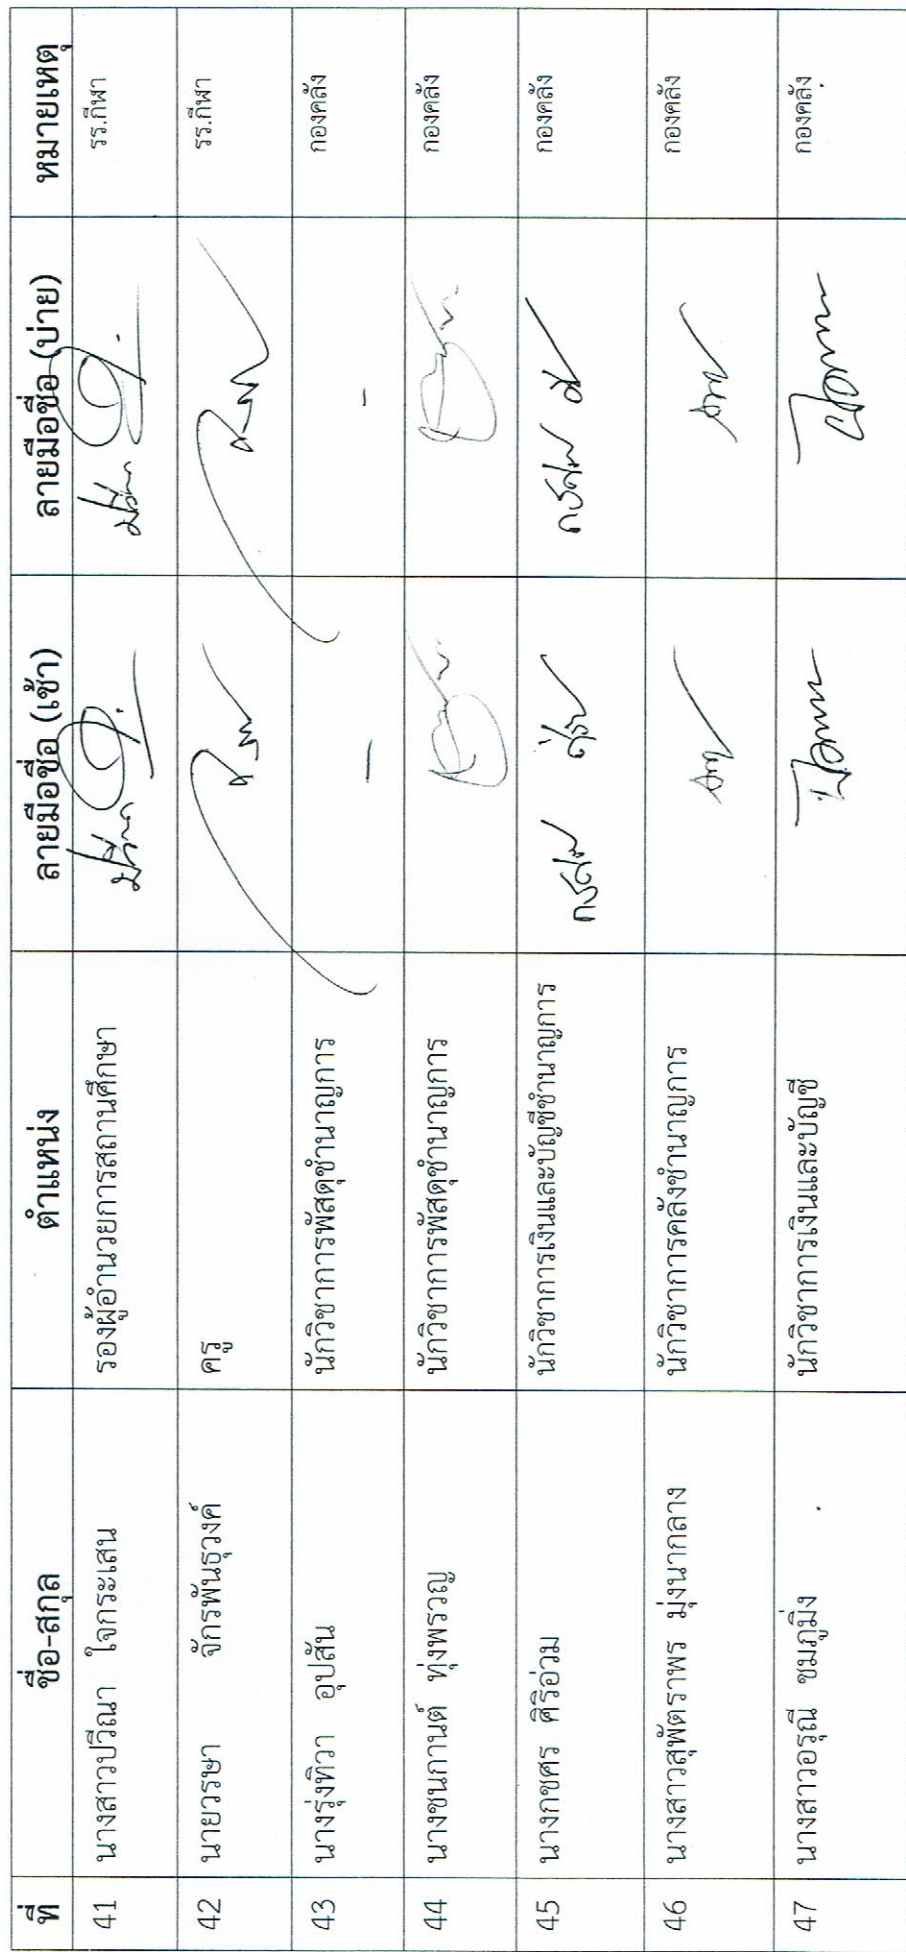 ที่ ชื่อ-สกุล ตำแหน่ง ลายมือชื่อ (เช้า) ลายมือชื่อ (บ่าย) หมายเหตุ
41 นางสาวปวีณา ใจกระเสน รองผู้อำนวยการสถานศึกษา รร.กีฬา
42 นายวรรษา จักรพันธุวงศ์ ครู รร.กีฬา
43 นางรุ่งทิวา อุปสัน นักวิชาการพัสดุชำนาญการ - - กองคลัง
44 นางชนกานต์ ทุ่งพรวญ นักวิชาการพัสดุชำนาญการ กองคลัง
45 นางกชศร ศิริอ่วม นักวิชาการเงินและบัญชีชำนาญการ กองคลัง
46 นางสาวสุพัตราพร มุ่งนากลาง นักวิชาการคลังชำนาญการ กองคลัง
47 นางสาวอรุณี ชมภูมิ่ง นักวิชาการเงินและบัญชี กองคลัง